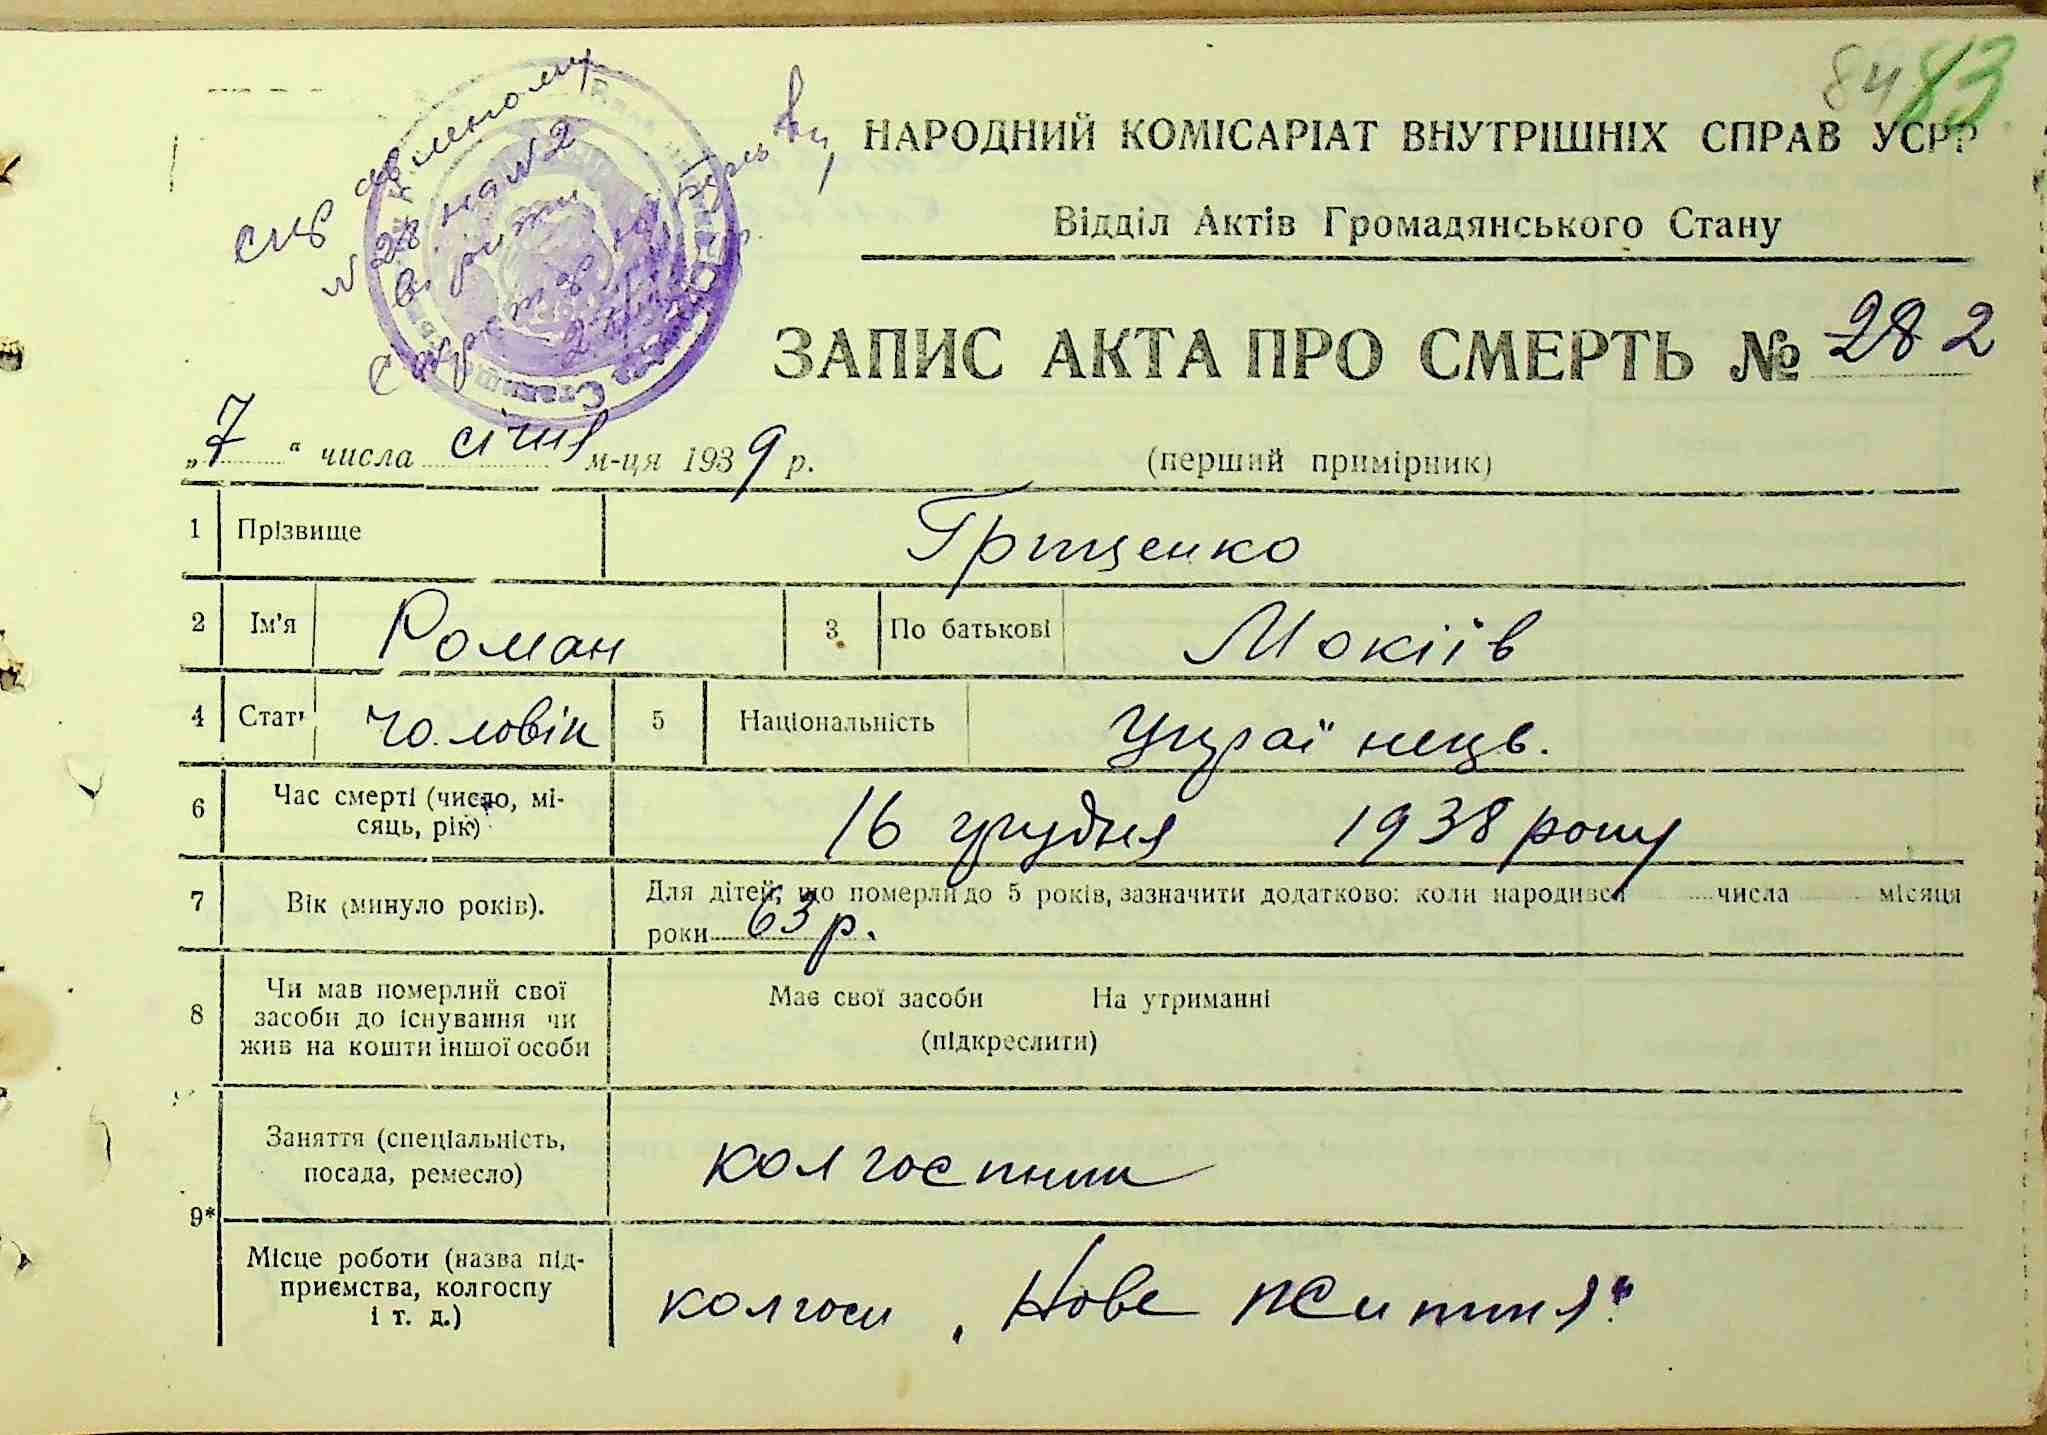 84 83
НАРОДНИЙ КОМІСАРІАТ ВНУТРІШНІХ СПРАВ УСРР
Відділ Актів Громадянського Стану
ЗАПИС АКТА ПРО СМЕРТЬ № 282
№ 28 на № 2
„7“ числа січня м-ця 1939 р. (перший примірник)
1 Прізвище Грищенко
2 Ім'я Роман 3 По батькові Мокіїв
4 Стать чоловік 5 Національність Українець.
6 Час смерті (число, мі-
сяць, рік) 16 грудня 1938 року
7 Вік (минуло років). Для дітей, що померли до 5 років, зазначити додатково: коли народився числа місяця
роки 63 р.
8 Чи мав померлий свої
засоби до існування чи
жив на кошти іншої особи
Має свої засоби На утриманні
(підкреслити)
9* Заняття (спеціальність,
посада, ремесло) колгоспник
Місце роботи (назва під-
приємства, колгоспу
і т. д.) колгосп „Нове життя“